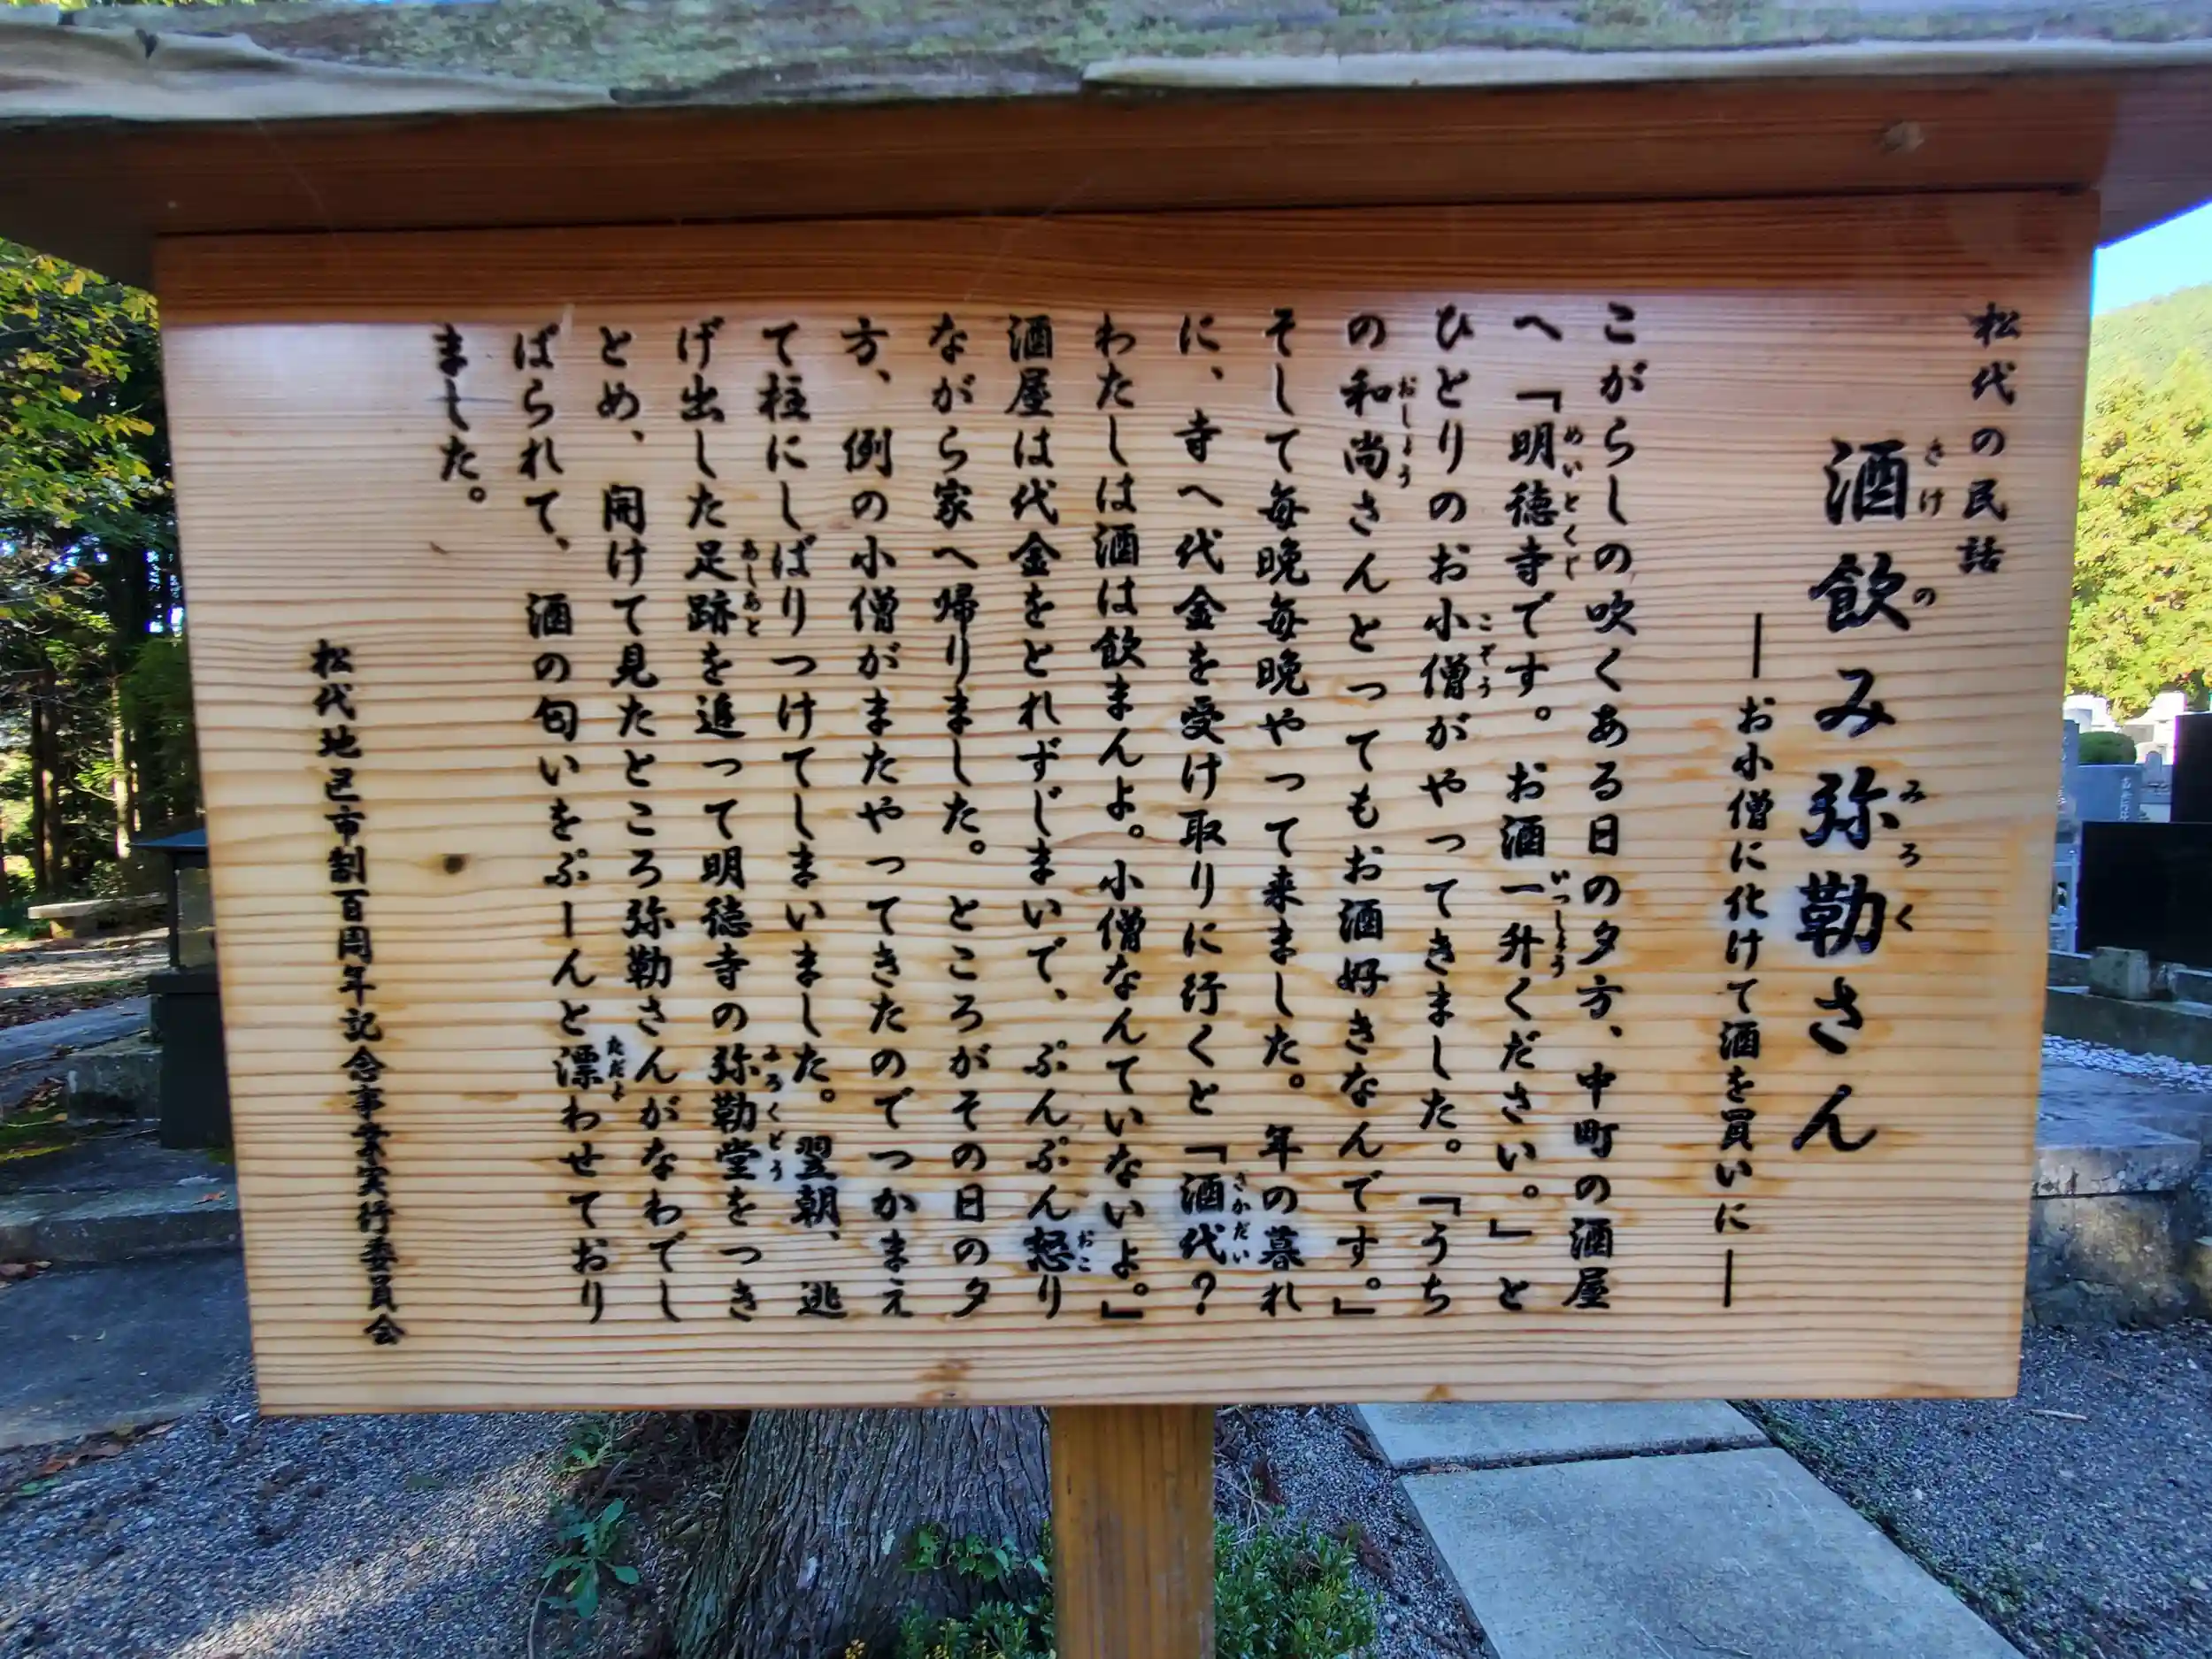 松代の民話
酒飲み弥勒さん
―お小僧に化けて酒を買いに―
こがらしの吹くある日の夕方、中町の酒屋
へ「明徳寺です。お酒一升ください。」と
ひとりのお小僧がやってきました。「うち
の和尚さんとってもお酒好きなんです。」
そして毎晩毎晩やって来ました。年の暮れ
に、寺へ代金を受け取りに行くと「酒代？
わたしは酒は飲まんよ。小僧なんていないよ。」
酒屋は代金をとれずじまいで、ぷんぷん怒り
ながら家へ帰りました。ところがその日の夕
方、例の小僧がまたやってきたのでつかまえ
て柱にしばりつけてしまいました。翌朝、逃
げ出した足跡を追って明徳寺の弥勒堂をつき
とめ、開けて見たところ弥勒さんがなわでし
ばられて、酒の匂いをぷーんと漂わせており
ました。
松代地区市制百周年記念事業実行委員会